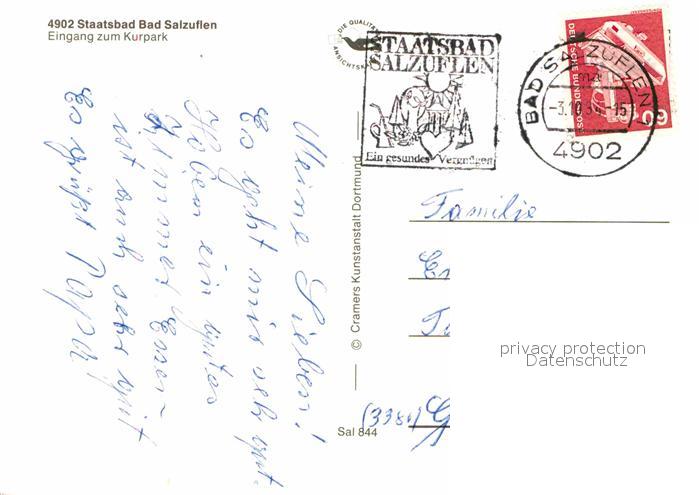 4902 Staatsbad Bad Salzuflen
Eingang zum Kurpark
DIE QUALITÄTS
ANSICHTSK
STAATSBAD
SALZUFLEN
Ein gesundes Vergnügen
BAD SALZUFLEN
4902
DEUTSCHE BUNDESPOST
60
Meine Lieben!
Es geht mir sehr gut.
Haben ein gutes
Zimmer, Essen
ist auch sehr gut
Es grüßt Papa!
© Cramers Kunstanstalt Dortmund
Sal 844
Familie
privacy protection
Datenschutz